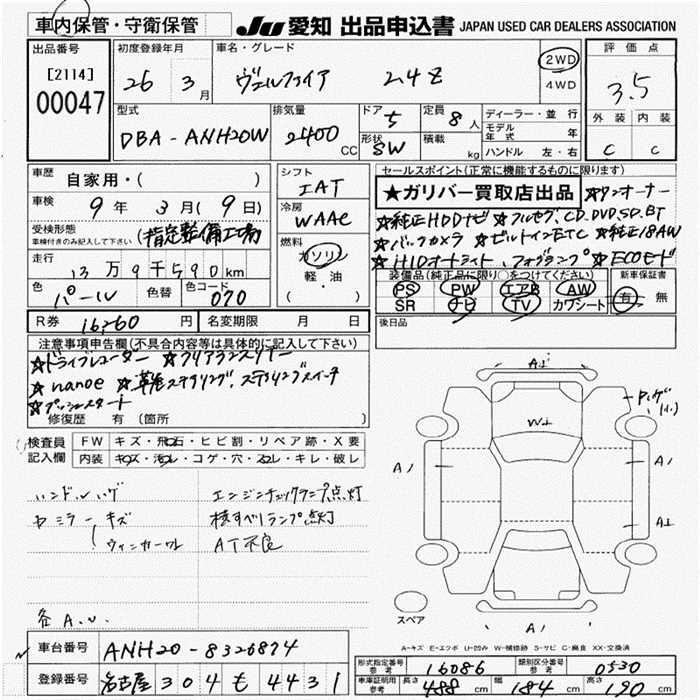 車内保管・守衛保管 JU 愛知 出品申込書 JAPAN USED CAR DEALERS ASSOCIATION
出品番号 [2114] 00047
初度登録年月 26 3月
車名・グレード ヴェルファイア 2.4Z
2WD
4WD
評価点 3.5
外装 内装
C C
型式 DBA-ANH20W
排気量 2400 CC
ドア 5
形状 SW
定員 8人
積載 kg
ディーラー・並行
モデル年式 年
ハンドル 左・右
車歴 自家用・( )
車検 9年 3月(9日)
受検形態 (指定整備工場)
車検付きのみ記入して下さい
走行 13万9千590km
色 パール 色替 色コード 070
シフト IAT
冷房 WAAC
燃料 ガソリン
軽・油
( )
セールスポイント(正常に機能するものに限ります)
★ガリバー買取店出品 ☆ワンオーナー
☆純正HDDナビ ☆フルセグ、CD.DVD.SD.BT
☆バックカメラ ☆ビルトインETC ☆純正18AW
☆HIDオートライト、フォグランプ ☆ECOモード
装備品(純正品に限り○をつけてください) 新車保証書
PS PW エアB AW 有 無
SR ナビ TV カワシート
後日品
R券 16260円 名変期限 月 日
注意事項申告欄(不具合内容等は具体的に記入して下さい)
☆ドライブレコーダー ☆クリアランスソナー
☆nanoe ☆革巻ステアリング、ステアリングスイッチ
☆プッシュスタート
修復歴 有(箇所 )
検査員記入欄
FW キズ・飛石・ヒビ割・リペア跡・X要
内装 キズ・汚レ・コゲ・穴・ヌレ・キレ・破レ
ハンドルハゲ エンジンチェックランプ点灯
ヤミラーキズ 横すべりランプ点灯
ウィンカーワレ AT不良
各A.U.
A⊥
W⊥
A/
A/
A⊥
A/
スペア
A-キズ E-エクボ U-凹み W-補修跡 S-サビ C-腐食 XX-交換済
車台番号 ANH20-8326874
登録番号 名古屋 304 も 4431
形式指定番号 参考 16086 類別区分番号 参考 0530
車庫証明用 参考 長さ 488 cm 幅 184 cm 高さ 190 cm